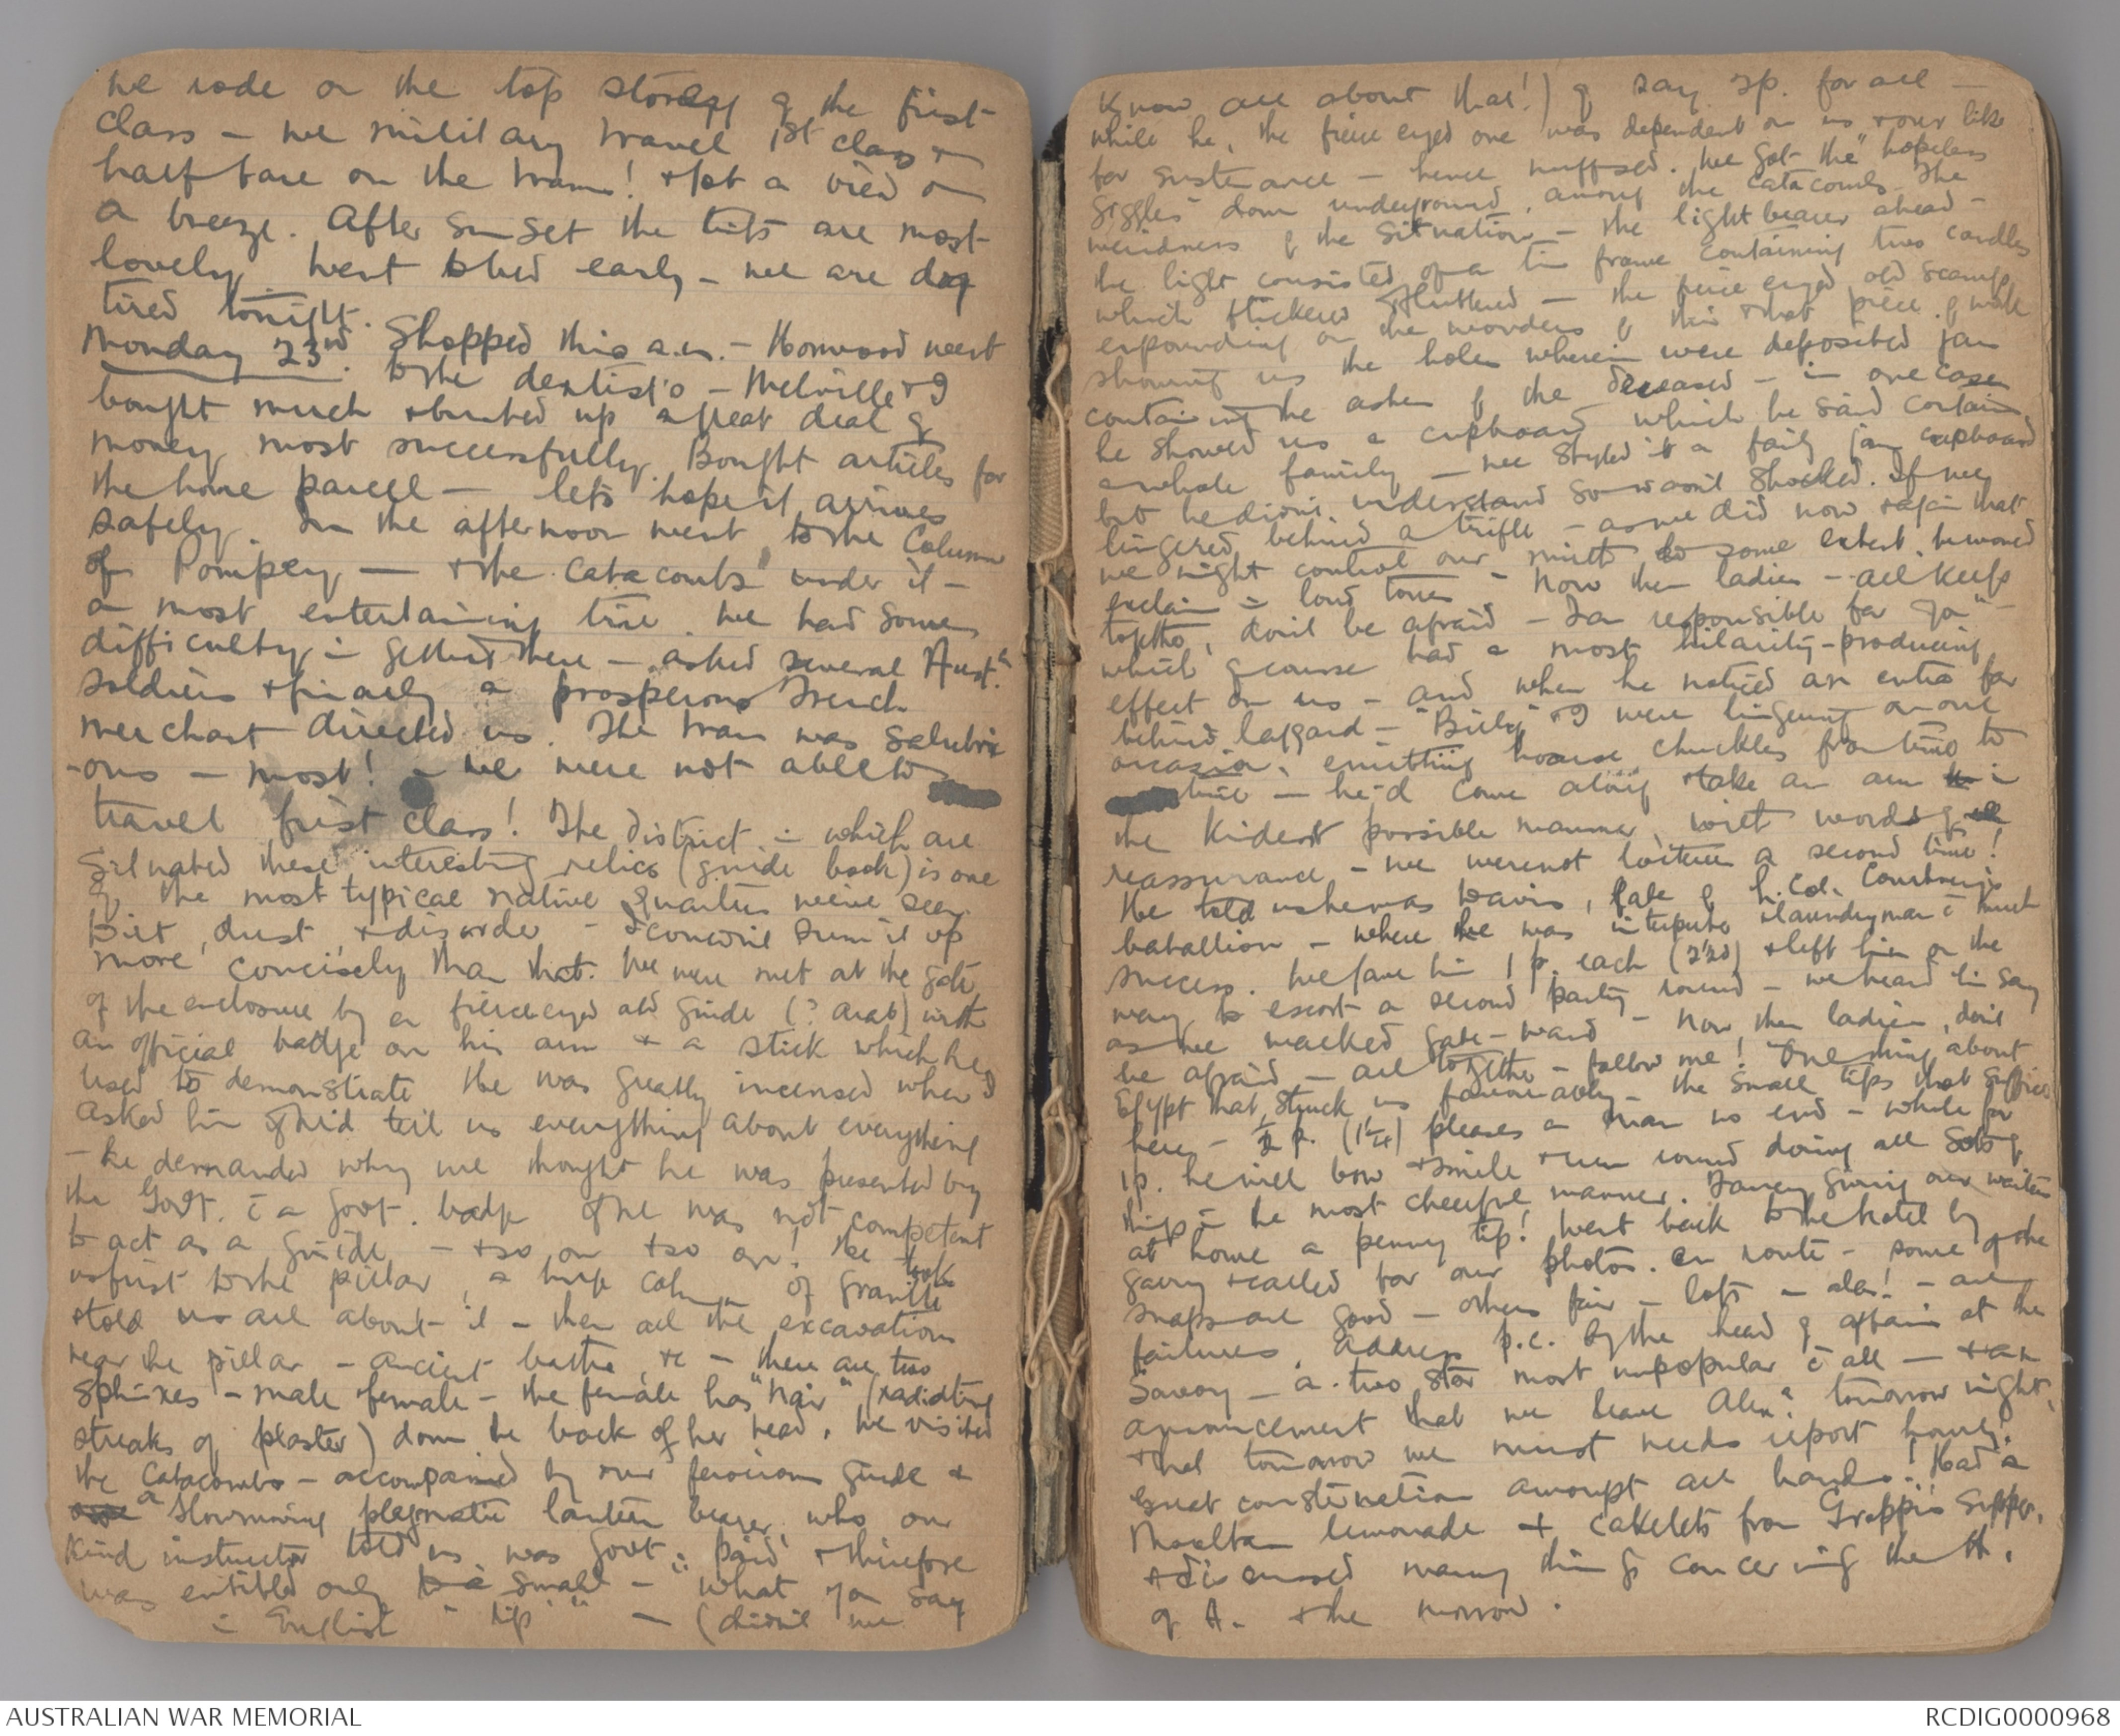 we rode on the top storey of the first
class – we military travel 1st class on
half fare on the trams! & got a view &
a breeze. After sunset the tints are most
lovely. Went to bed early – we are dog
tired tonight.
Monday 23rd. Shopped this a.m. – Horwood went
to the dentist's – Melville & I
bought much & burnt up a great deal of
money most successfully. Bought articles for
the home parcel – lets hope it arrives
safely. In the afternoon went to the Column
of Pompey – & the Catacombs under it –
a most entertaining time. We had some
difficulty in getting there – asked several Aust.n
soldiers & finally a prosperous French
merchant directed us. The tram was salubri
-ous – most! – we were not able to
travel first class! The district in which are
situated these interesting relics (guide book) is one
of the most typical native quarters we've seen
Dirt, dust, & disorder – I couldn't sum it up
more concisely than that. We were met at the gate
of the enclosure by a fierce eyed old guide (? Arab) with
an official badge on his arm & a stick which he
used to demonstrate He was greatly incensed when I
asked him if he'd tell us everything about everything
– he demanded why we thought he was presented by
the Govt. c̄ a govt. badge if he was not competent
to act as a guide – & so on & so on! He took
us first to the pillar, a huge column of granite
& told us all about it – then all the excavations
near the pillar – ancient baths &c – there are two
Sphinxes – male & female – the female has "hair" (radiating
streaks of plaster) down the back of her head. We visited
the Catacombs – accompanied by our ferocious guide &
a slow moving plegmatic lantern bearer, who our
kind instructor told us was Govt. paid & therefore
was entitled only to a small – "what you say
in English "tip"" – (didn't we
Know all about that!) of say 2p. for all –
while he, the fierce eyed one was dependent on us & our like
for sustenance – hence nuffsed. We got the "hopeless
giggles" down underground, among the catacombs. The
weirdness of the situation – the light bearer ahead –
the light consisted of a tin frame containing two candles
which flickered & fluttered – the fierce eyed old scamp
expounding on the wonders of this & that piece of wall
showing us the holes wherein were deposited jars
containing the ashes of the deceased – in one case
he showed us a cupboard which he said contain
a whole family – we styled it a faily jam cupboard
but he didn't understand so wasn't shocked. If we
lingered behind a trifle – as we did now & again that
we might control our mirth to some extent, he would
exclaim in loud tones – "Now then ladies – all keep
together, don't be afraid – I am responsible for you" –
which of course had a most hilarity-producing
effect on us – and when he noticed an extra far
behind laggard – "Bieby" & I were lingering on one
occasion, emitting hoarse chuckles from time to
time – he'd come along & take an arm in
the kindest possible manner, with words of
reassurance – we were not loiterers a second time!
He told us he was Davis, late of L. Col. Courtney's
batallion – where he was interpreter & laundryman c̄ much
success. We gave him 1 p. each (2½d) & left him on the
way to escort a second party round – we heard him say
as we walked gate-ward – "Now then ladies, don't
be afraid – all together – follow me! One thing about
Egypt that struck us favourably – the small tips that suffice
here – ½ p. (1¼) pleases a man no end – while for
1p. he will bow & smile & run round doing all sorts of
things in the most cheerful manner. Fancy giving our waiters
at home a penny tip! Went back to the hotel by
garry & called for our photos. en route – some of the
snaps are good – others fair – lots – alas! – are
failures. Address p.c. by the head of affairs at the
Savoy – a two star most unpopular c̄ all – & an
announcement that we leave Alex.a tomorrow night,
& that tomorrow we must needs report hourly!
Great consternation amongst all hands! Had a
Moalton lemonade & cakelets from Groppi's supper,
& discussed many things concerning the H.
of A. & the morrow.
AUSTRALIAN WAR MEMORIAL
RCDIG0000968